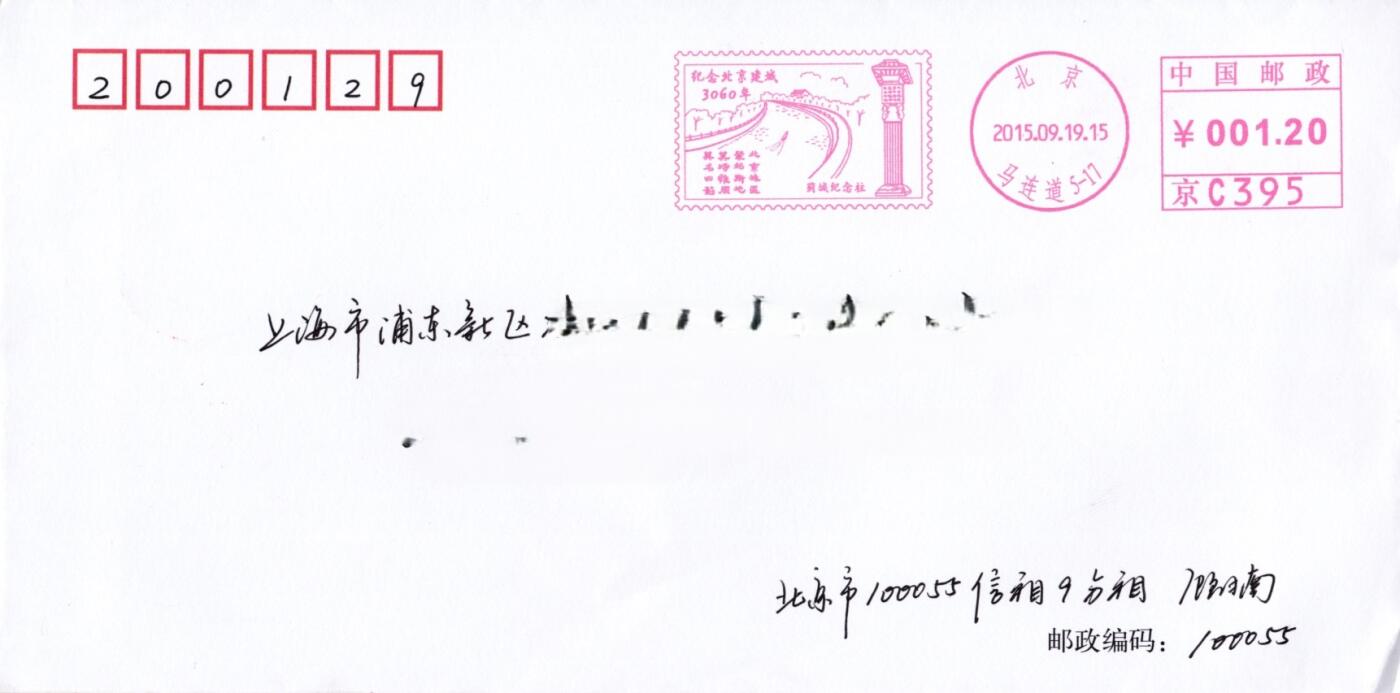 200129
纪念北京建城
3060年
蓟城纪念柱
北京
2015.09.19.15
马连道5-17
中国邮政
¥001.20
京C395
上海市浦东新区
北京市100055信箱9分箱
邮政编码：100055